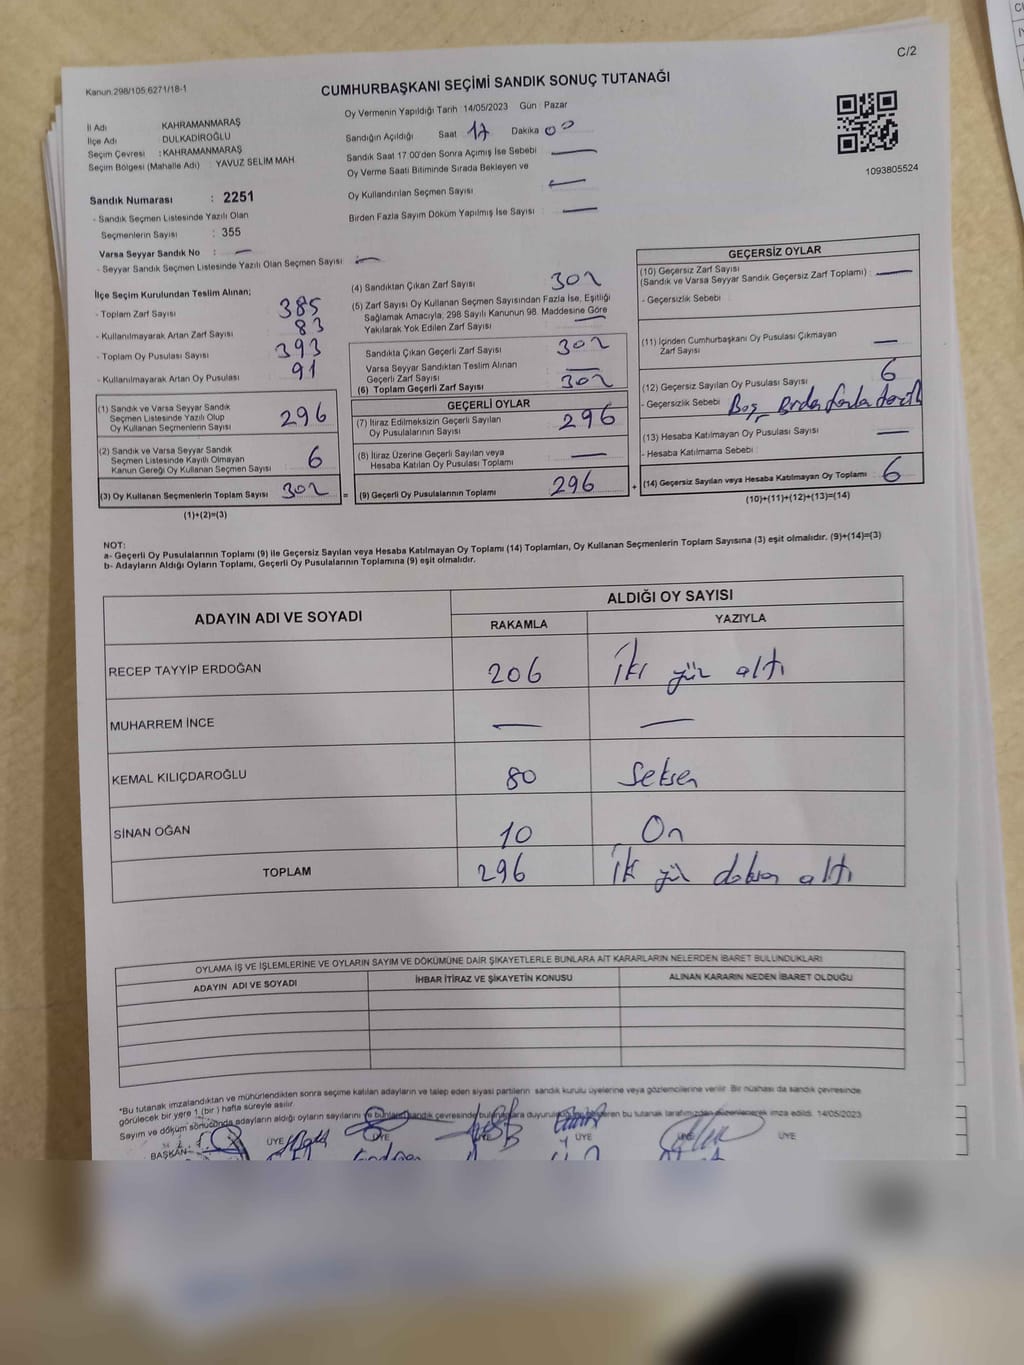 C/2
Kanun.298/105;6271/18-1
CUMHURBAŞKANI SEÇİMİ SANDIK SONUÇ TUTANAĞI
Oy Vermenin Yapıldığı Tarih 14/05/2023 Gün : Pazar
İl Adı KAHRAMANMARAŞ
İlçe Adı DULKADİROĞLU
Seçim Çevresi : KAHRAMANMARAŞ
Seçim Bölgesi (Mahalle Adı) : YAVUZ SELİM MAH
Sandığın Açıldığı Saat 17 Dakika 00
Sandık Saat 17:00'den Sonra Açımış İse Sebebi —
Oy Verme Saati Bitiminde Sırada Bekleyen ve
Oy Kullandırılan Seçmen Sayısı —
Birden Fazla Sayım Döküm Yapılmış İse Sayısı —
1093805524
Sandık Numarası : 2251
- Sandık Seçmen Listesinde Yazılı Olan
Seçmenlerin Sayısı : 355
Varsa Seyyar Sandık No : —
- Seyyar Sandık Seçmen Listesinde Yazılı Olan Seçmen Sayısı : —
İlçe Seçim Kurulundan Teslim Alınan;
- Toplam Zarf Sayısı 385
- Kullanılmayarak Artan Zarf Sayısı 83
- Toplam Oy Pusulası Sayısı 393
- Kullanılmayarak Artan Oy Pusulası 91
(1) Sandık ve Varsa Seyyar Sandık
Seçmen Listesinde Yazılı Olup
Oy Kullanan Seçmenlerin Sayısı 296
(2) Sandık ve Varsa Seyyar Sandık
Seçmen Listesinde Kayıtlı Olmayan
Kanun Gereği Oy Kullanan Seçmen Sayısı 6
(3) Oy Kullanan Seçmenlerin Toplam Sayısı 302 =
(1)+(2)=(3)
(4) Sandıktan Çıkan Zarf Sayısı 302
(5) Zarf Sayısı Oy Kullanan Seçmen Sayısından Fazla İse, Eşitliği
Sağlamak Amacıyla, 298 Sayılı Kanunun 98. Maddesine Göre
Yakılarak Yok Edilen Zarf Sayısı —
Sandıkta Çıkan Geçerli Zarf Sayısı 302
Varsa Seyyar Sandıktan Teslim Alınan
Geçerli Zarf Sayısı —
(6) Toplam Geçerli Zarf Sayısı 302
GEÇERLİ OYLAR
(7) İtiraz Edilmeksizin Geçerli Sayılan
Oy Pusulalarının Sayısı 296
(8) İtiraz Üzerine Geçerli Sayılan veya
Hesaba Katılan Oy Pusulası Toplamı —
(9) Geçerli Oy Pusulalarının Toplamı 296 +
GEÇERSİZ OYLAR
(10) Geçersiz Zarf Sayısı
(Sandık ve Varsa Seyyar Sandık Geçersiz Zarf Toplamı) : —
- Geçersizlik Sebebi :
(11) İçinden Cumhurbaşkanı Oy Pusulası Çıkmayan
Zarf Sayısı —
(12) Geçersiz Sayılan Oy Pusulası Sayısı 6
- Geçersizlik Sebebi Boş,
(13) Hesaba Katılmayan Oy Pusulası Sayısı —
- Hesaba Katılmama Sebebi :
(14) Geçersiz Sayılan veya Hesaba Katılmayan Oy Toplamı 6
(10)+(11)+(12)+(13)=(14)
NOT:
a- Geçerli Oy Pusulalarının Toplamı (9) ile Geçersiz Sayılan veya Hesaba Katılmayan Oy Toplamı (14) Toplamları, Oy Kullanan Seçmenlerin Toplam Sayısına (3) eşit olmalıdır. (9)+(14)=(3)
b- Adayların Aldığı Oyların Toplamı, Geçerli Oy Pusulalarının Toplamına (9) eşit olmalıdır.
ADAYIN ADI VE SOYADI ALDIĞI OY SAYISI
RAKAMLA YAZIYLA
RECEP TAYYİP ERDOĞAN 206 İki yüz altı
MUHARREM İNCE — —
KEMAL KILIÇDAROĞLU 80 Seksen
SİNAN OĞAN 10 On
TOPLAM 296 İki yüz doksan altı
OYLAMA İŞ VE İŞLEMLERİNE VE OYLARIN SAYIM VE DÖKÜMÜNE DAİR ŞİKAYETLERLE BUNLARA AİT KARARLARIN NELERDEN İBARET BULUNDUKLARI
ADAYIN ADI VE SOYADI İHBAR İTİRAZ VE ŞİKAYETİN KONUSU ALINAN KARARIN NEDEN İBARET OLDUĞU
*Bu tutanak imzalandıktan ve mühürlendikten sonra seçime katılan adayların ve talep eden siyasi partilerin sandık kurulu üyelerine veya gözlemcilerine verilir. Bir nüshası da sandık çevresinde
görülecek bir yere 1 (bir) hafta süreyle asılır.
Sayım ve döküm sonucunda adayların aldığı oyların sayılarını ve bunların sandık çevresinde bulunanlara duyurulduğunu bu tutanak tarafımızdan düzenlenerek imza edildi. 14/05/2023
BAŞKAN ÜYE ÜYE ÜYE ÜYE ÜYE ÜYE